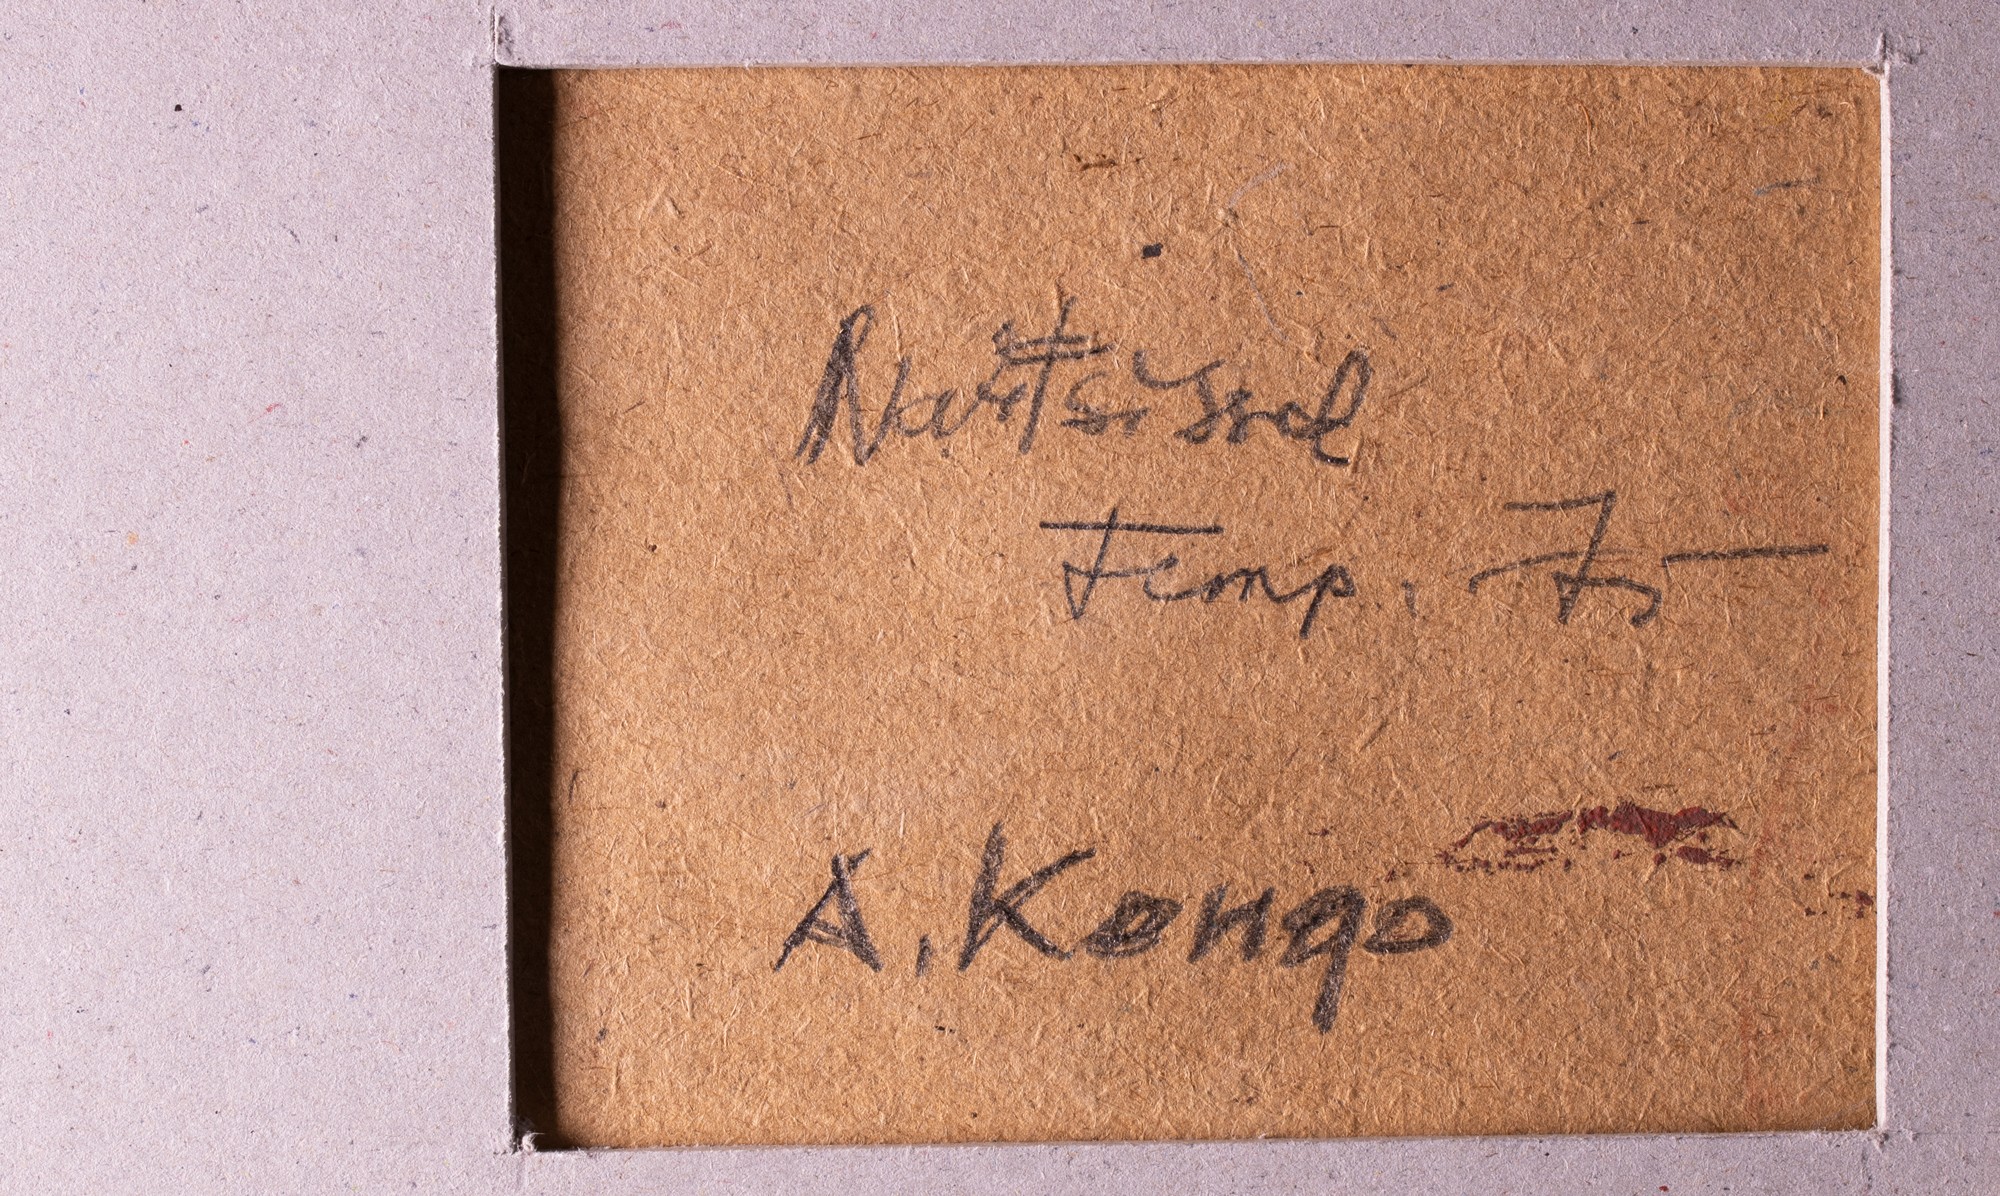 Nartsissid
Temp. 75 —
A. Kongo